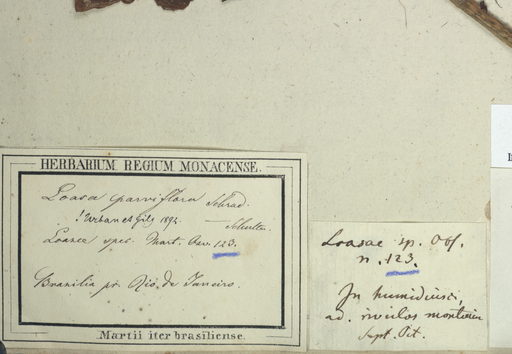 HERBARIUM REGIUM MONACENSE.
Loasa parviflora Schrad.
! Urban et Gilg 1892. Schultes.
Loasea spec. Mart. Obs. 123.
Brasilia pr. Rio de Janeiro.
Martii iter brasiliense.
Loasae sp. Obs.
n. 123.
In humidiusc.
ad. rivulos montium
Sept. Oct.